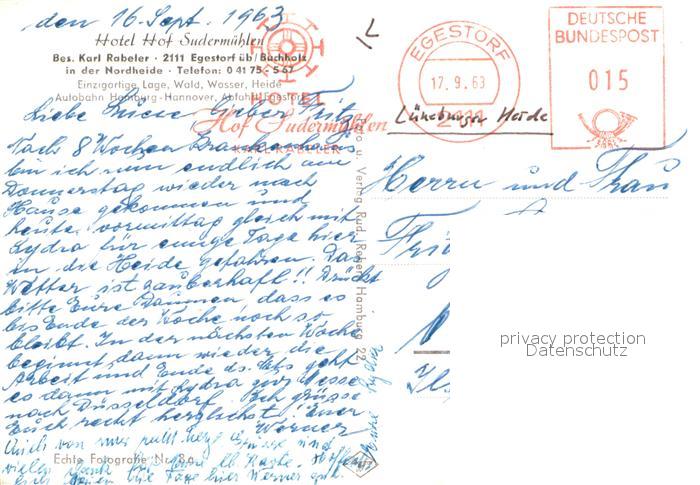 den 16. Sept. 1963
Hotel Hof Sudermühlen
Bes. Karl Rabeler · 2111 Egestorf üb/Buchholz
in der Nordheide · Telefon: 0 41 75 - 5 67
Einzigartige Lage, Wald, Wasser, Heide
Autobahn Hamburg-Hannover, Abfahrt Egestorf
HOTEL
Hof Sudermühlen
KARL RABELER
EGESTORF
17.9.63
2111
DEUTSCHE
BUNDESPOST
015
Lüneburger Heide
Liebe Grete, lieber Fritz
Nach 8 Wochen Krankenhaus
bin ich nun endlich am
Donnerstag wieder nach
Hause gekommen und
heute vormittag gleich mit
Lydra für einige Tage hier
in die Heide gefahren. Das
Wetter ist zauberhaft!! Drückt
bitte Eure Daumen, dass es
bis Ende der Woche noch so
bleibt. In der nächsten Woche
beginnt dann wieder die
Arbeit und Ende ds. Mts. geht
es dann mit Lydra zur Messe
nach Düsseldorf. Ich grüsse
Euch recht herzlichst! Euer
Werner
Auch von mir recht herzl. Grüsse und
vielen Dank für Karte.
Tage hier Werner
Echte Fotografie Nr. 8a
u. Verlag Rud. Hamburg 22
Herrn und Frau
Fri
privacy protection
Datenschutz